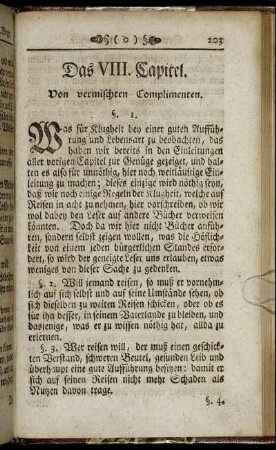 ( o ) 203
Das VIII. Capitel.
Von vermischten Complimenten.
§. 1.
Was für Klugheit bey einer guten Aufführ-
ung und Lebensart zu beobachten, das
haben wir bereits in den Einleitungen
aller vorigen Capitel zur Genüge gezeiget, und hal-
ten es also für unnöthig, hier noch weitläuftige Ein-
leitung zu machen; dieses einzige wird nöthig seyn,
daß wir noch einige Regeln der Klugheit, welche auf
Reisen in acht zu nehmen, hier vorschreiben, ob wir
wol dabey den Leser auf andere Bücher verweisen
könnten. Doch da wir hier nicht Bücher anfüh-
ren, sondern selbst zeigen wollen, was die Höflich-
keit von einem jeden bürgerlichen Standes erfor-
dert, so wird der geneigte Leser uns erlauben, etwas
weniges von dieser Sache zu gedenken.
§. 2. Will jemand reisen, so muß er vornehm-
lich auf sich selbst und auf seine Umstände sehen, ob
sich dieselben zu weiten Reisen schicken, oder ob es
für ihn besser, in seinem Vaterlande zu bleiben, und
dasjenige, was er zu wissen nöthig hat, allda zu
erlernen.
§. 3. Wer reisen will, der muß einen geschick-
ten Verstand, schweren Beutel, gesunden Leib und
überhaupt eine gute Aufführung besitzen: damit er
sich auf seinen Reisen nicht mehr Schaden als
Nutzen davon trage.
§. 4.